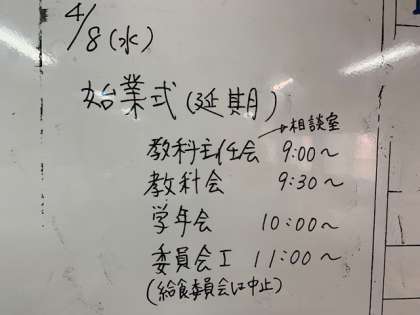 4/8(水)
始業式(延期)
→相談室
教科主任会 9:00〜
教科会 9:30〜
学年会 10:00〜
委員会Ⅰ 11:00〜
(給食委員会は中止)